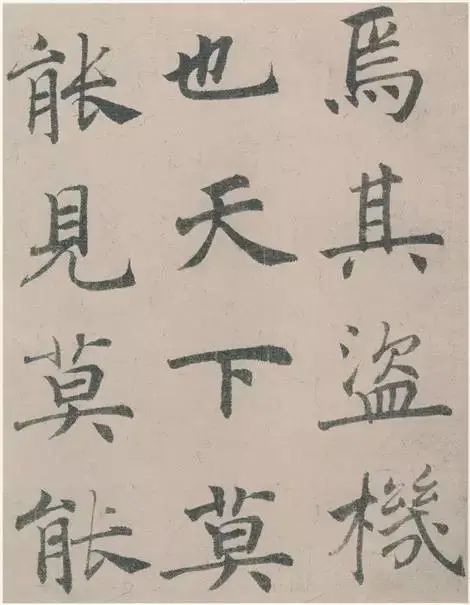 焉其盜機
也天下莫
能見莫能